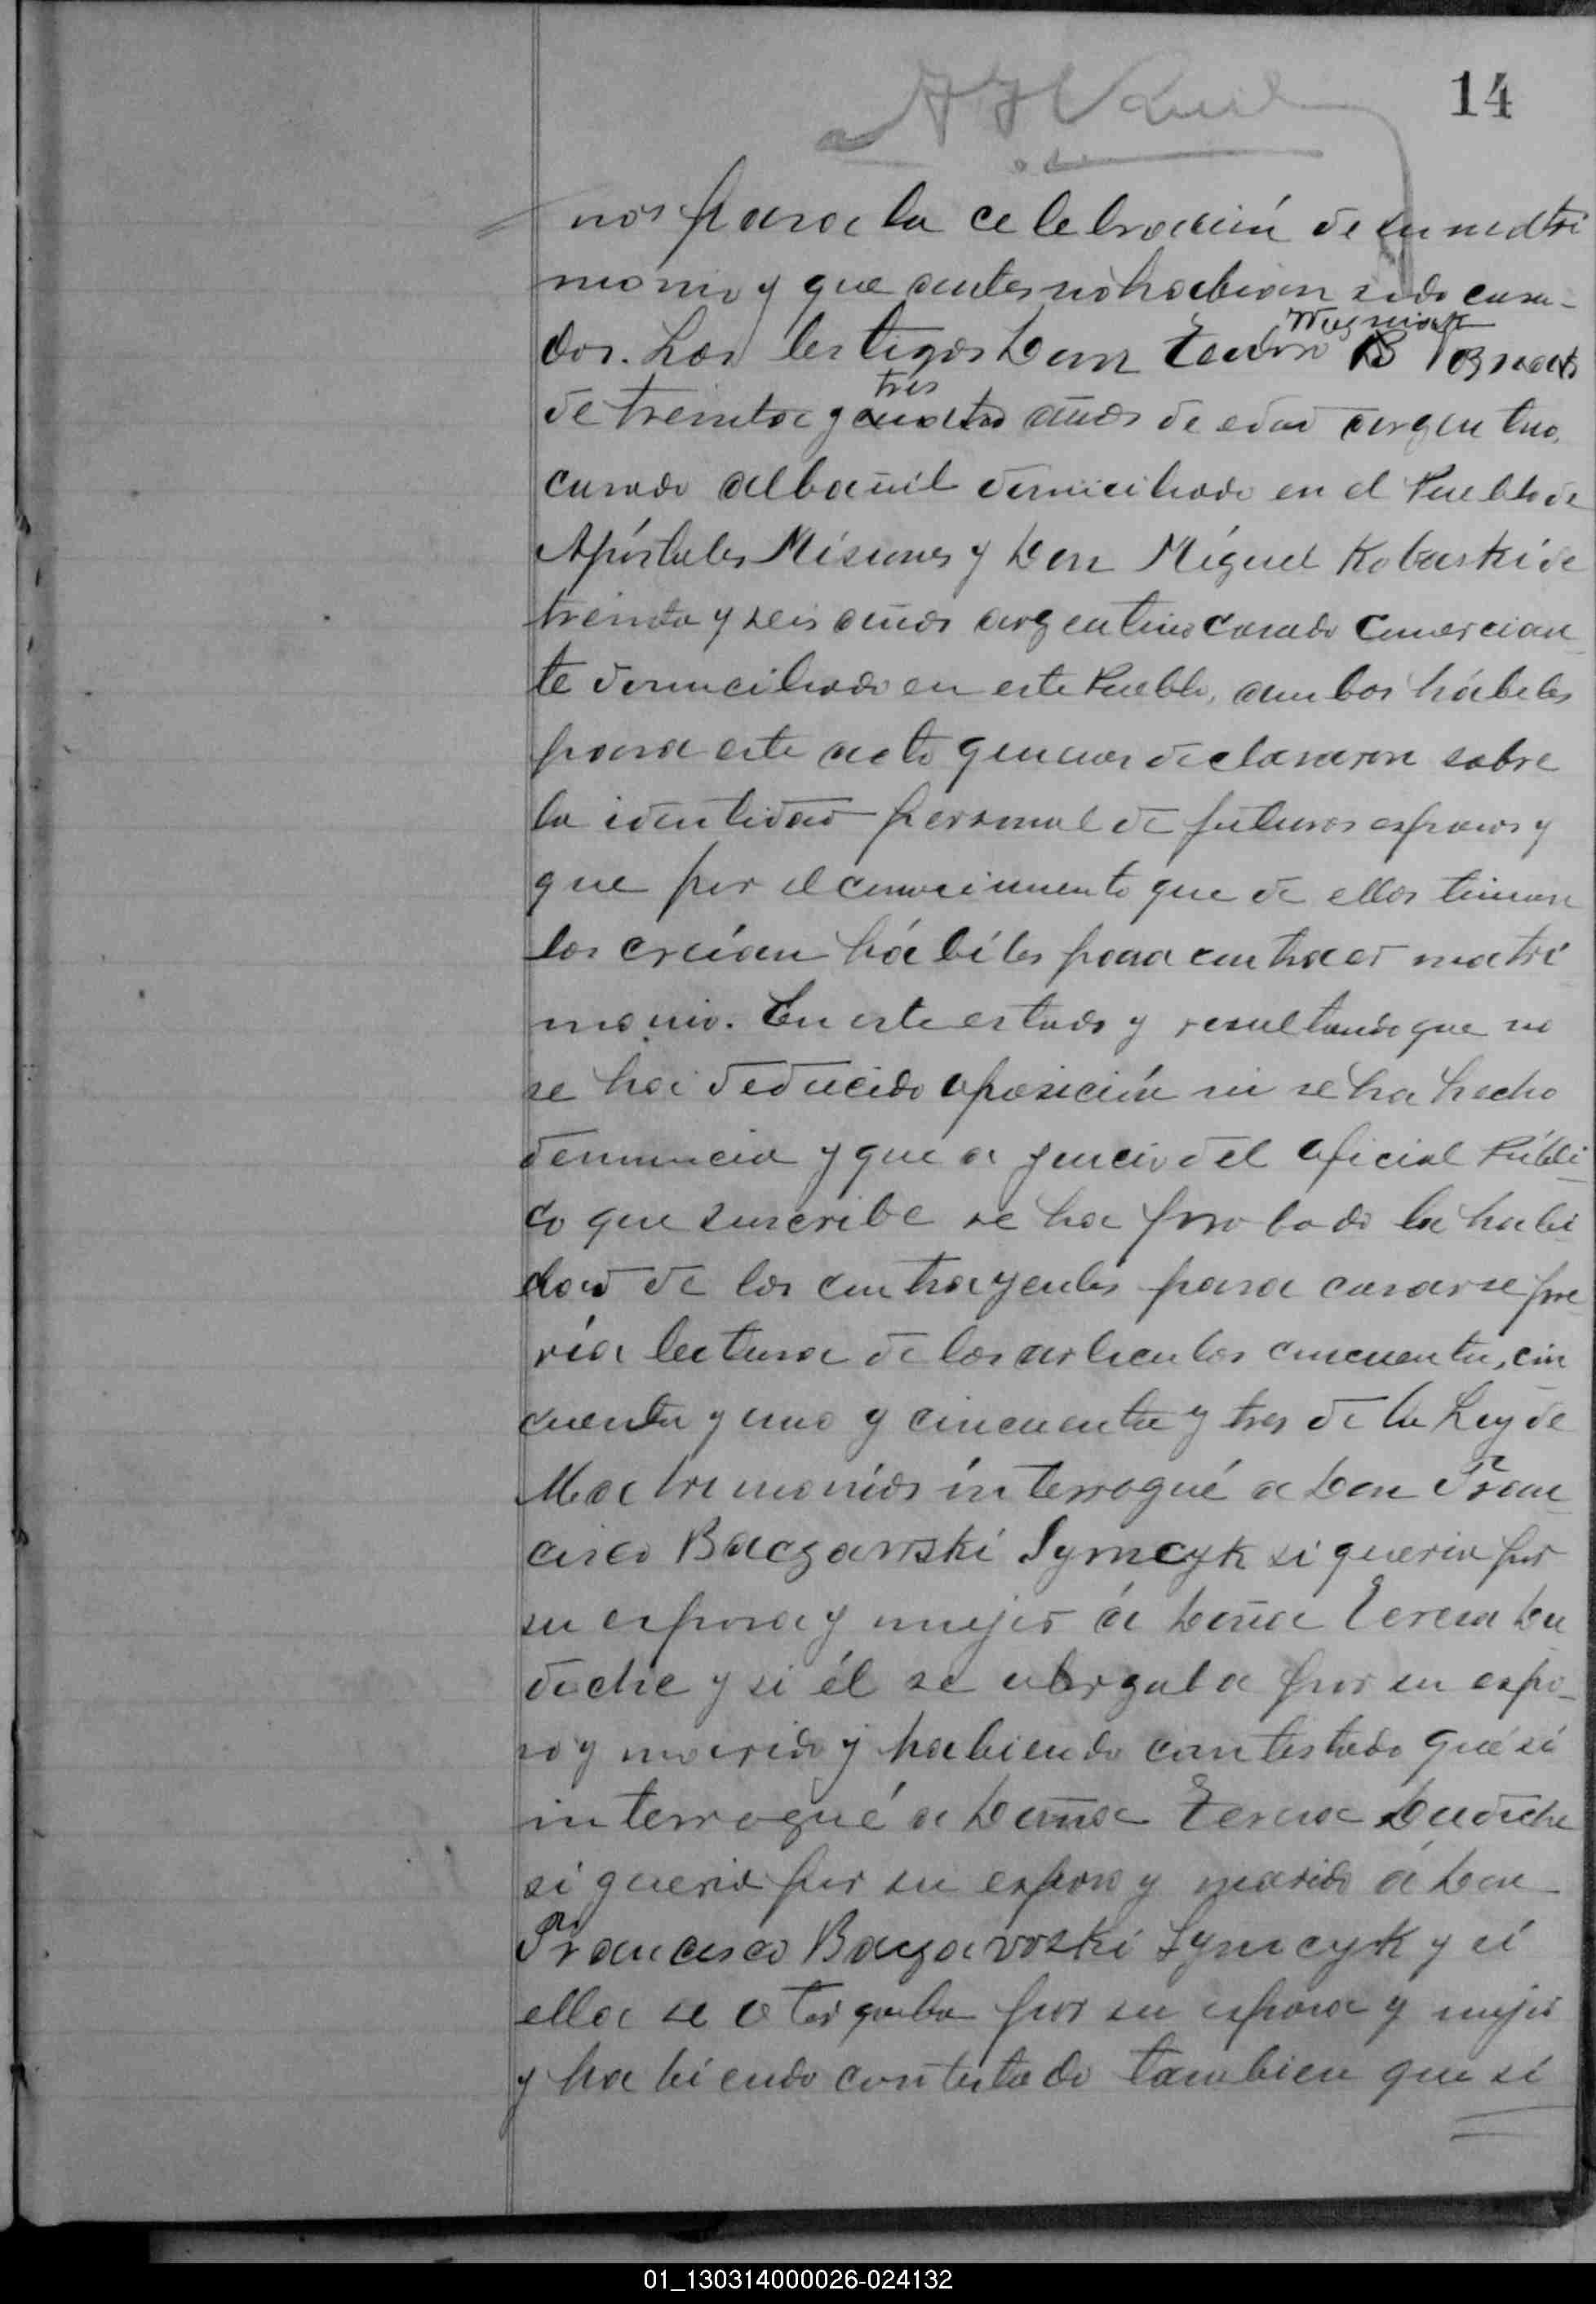 14
nos para la celebración de su matri
monio y que antes no habian sido casa-
dos. Los testigos Don
tres
de treinta y cuatro años de edad argentino,
casado albañil domiciliado en el Pueblo de
Apóstoles Misiones y Don Miguel Kobaski de
treinta y seis años argentino casado comercian
te domiciliado en este Pueblo, ambos hábiles
para este acto quienes declararon sobre
la identidad personal de futuros esposos y
que por el conocimiento que de ellos tienen
los creían hábiles para contraer matri
monio. En este estado y resultando que no
se ha deducido oposición ni se ha hecho
denuncia y que a juicio del oficial Públi
co que suscribe se ha probado la habi
dad de los contrayentes para casarse pre
via lectura de los articulos cincuenta, cin
cuenta y uno y cincuenta y tres de la Ley de
Matrimonios interrogué a Don Fran
cisco Baczawski Symcyk si queria por
su esposa y mujer á Doña Teresa Du
diche y si él se otorgaba por su espo-
so y marido y habiendo contestado que si
interrogué a Doña Teresa Dudiche
si queria por su esposo y marido á Don
Francisco Baczawoski Symcyk y si
ella se otorgaba por su esposa y mujer
y habiendo contestado tambien que si
01_130314000026-024132